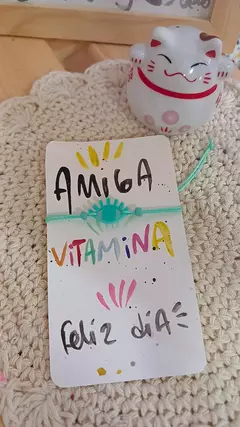 AMIGA
VITAMINA
feliz dia